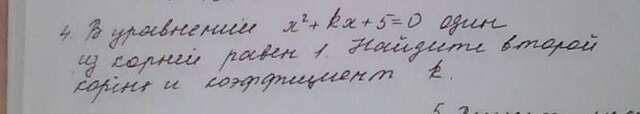 4. В уравнении x²+kx+5=0 один
из корней равен 1. Найдите второй
корень и коэффициент k.
5.